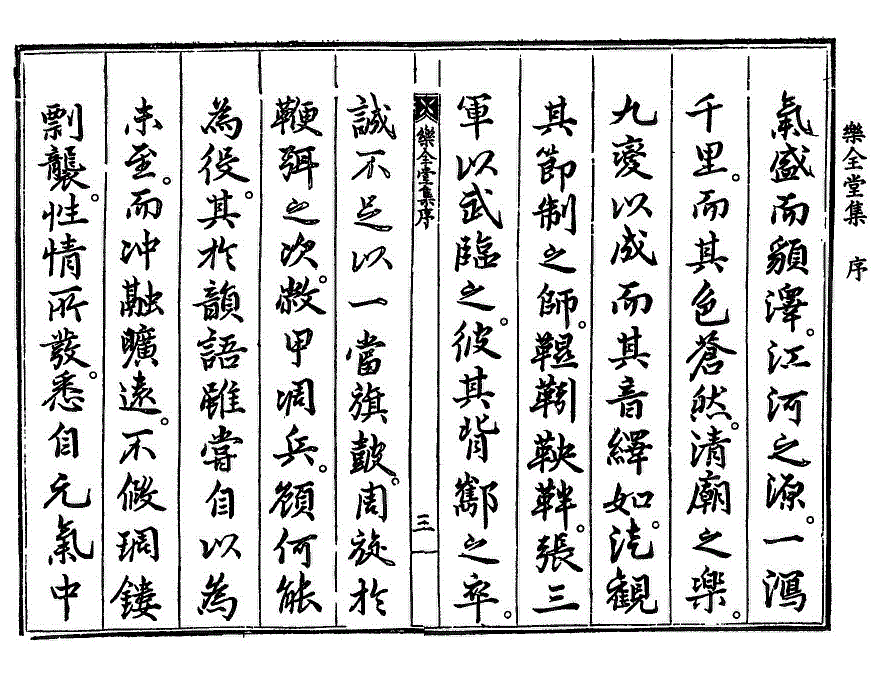 樂全堂集 序
氣盛而䫉澤。江河之源。一瀉
千里。而其色蒼然。清廟之樂。
九變以成而其音繹如。觀
其節制之師。韅靷鞅靽。張三
軍以武臨之。彼其背酅之卒。
樂全堂集序 三
誠不足以一當旗鼓。周旋於
鞭弭之次。敝甲凋兵。顧何能
為役。其於韻語雖嘗自以為
未至。而冲融曠遠。不假琱鏤
剽襲。性情所發。悉自元氣中